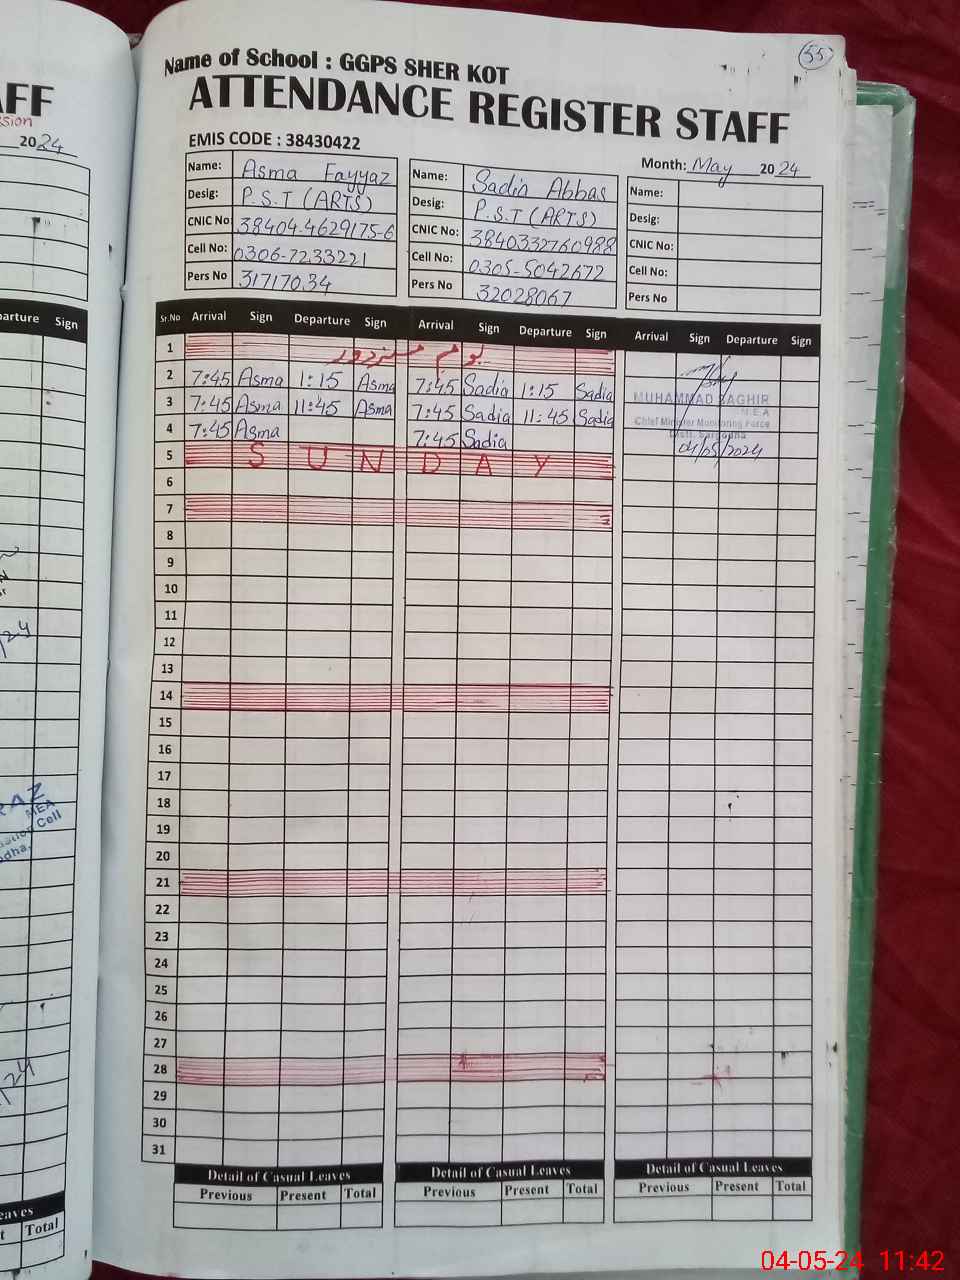 55
Name of School : GGPS SHER KOT
ATTENDANCE REGISTER STAFF
EMIS CODE : 38430422
Month: May 2024
Name: Asma Fayyaz
Desig: P.S.T (ARTS)
CNIC No: 38404-4629175-6
Cell No: 0306-7233221
Pers No 31717034
Name: Sadia Abbas
Desig: P.S.T (ARTS)
CNIC No: 3840332760988
Cell No: 0305-5042672
Pers No 32028067
Name:
Desig:
CNIC No:
Cell No:
Pers No
Sr.No Arrival Sign Departure Sign Arrival Sign Departure Sign Arrival Sign Departure Sign
1 یوم مزدور
2 7:45 Asma 1:15 Asma 7:45 Sadia 1:15 Sadia
3 7:45 Asma 11:45 Asma 7:45 Sadia 11:45 Sadia
4 7:45 Asma 7:45 Sadia
5 SUNDAY
MUHAMMAD BAGHIR
M.E.A
Chief Minister Monitoring Force
Distt. Sargodha
04/05/2024
6
7
8
9
10
11
12
13
14
15
16
17
18
19
20
21
22
23
24
25
26
27
28
29
30
31
Detail of Casual Leaves Detail of Casual Leaves Detail of Casual Leaves
Previous Present Total Previous Present Total Previous Present Total
AFF
2024
parture Sign
RAZ
MEA
Cell
eaves
t Total
04-05-24 11:42